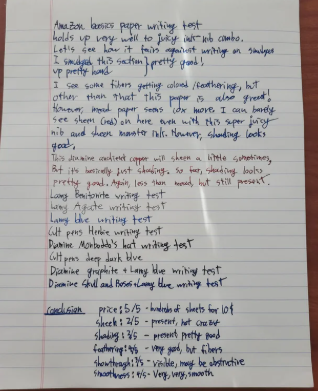 Amazon basics paper writing test
holds up very well to juicy ink nib combo.
Let's see how it fairs against writing on smudges
I smudged this section } pretty good!
up pretty hard
I see some fibers getting colored/feathering, but
other than that this paper is also great!
However, mead paper seems 10x more. I can barely
see sheen (red) on here even with this super juicy
nib and sheen monster ink. However, shading looks
good,
This diamine ancient copper will sheen a little sometimes,
But it's basically just shading. So far, shading looks
pretty good. Again, less than mead, but still present.
Lamy Benitonite writing test
Lamy Agate writing test
Lamy blue writing test
Cult pens Herbie writing test
Diamine Monboddo's hat writing test
Cult pens deep dark blue
Diamine graphite + Lamy blue writing test
Diamine Skull and Roses + Lamy blue writing test
Conclusion
price: 5/5 - hundreds of sheets for 10$
sheen: 2/5 - present, but crazist
shading: 3/5 - present pretty good
feathering: 4/5 - Very good, but fibers
showthrough: 3/5 - visible, may be obstructive
smoothness: 4/5 - Very, very, smooth